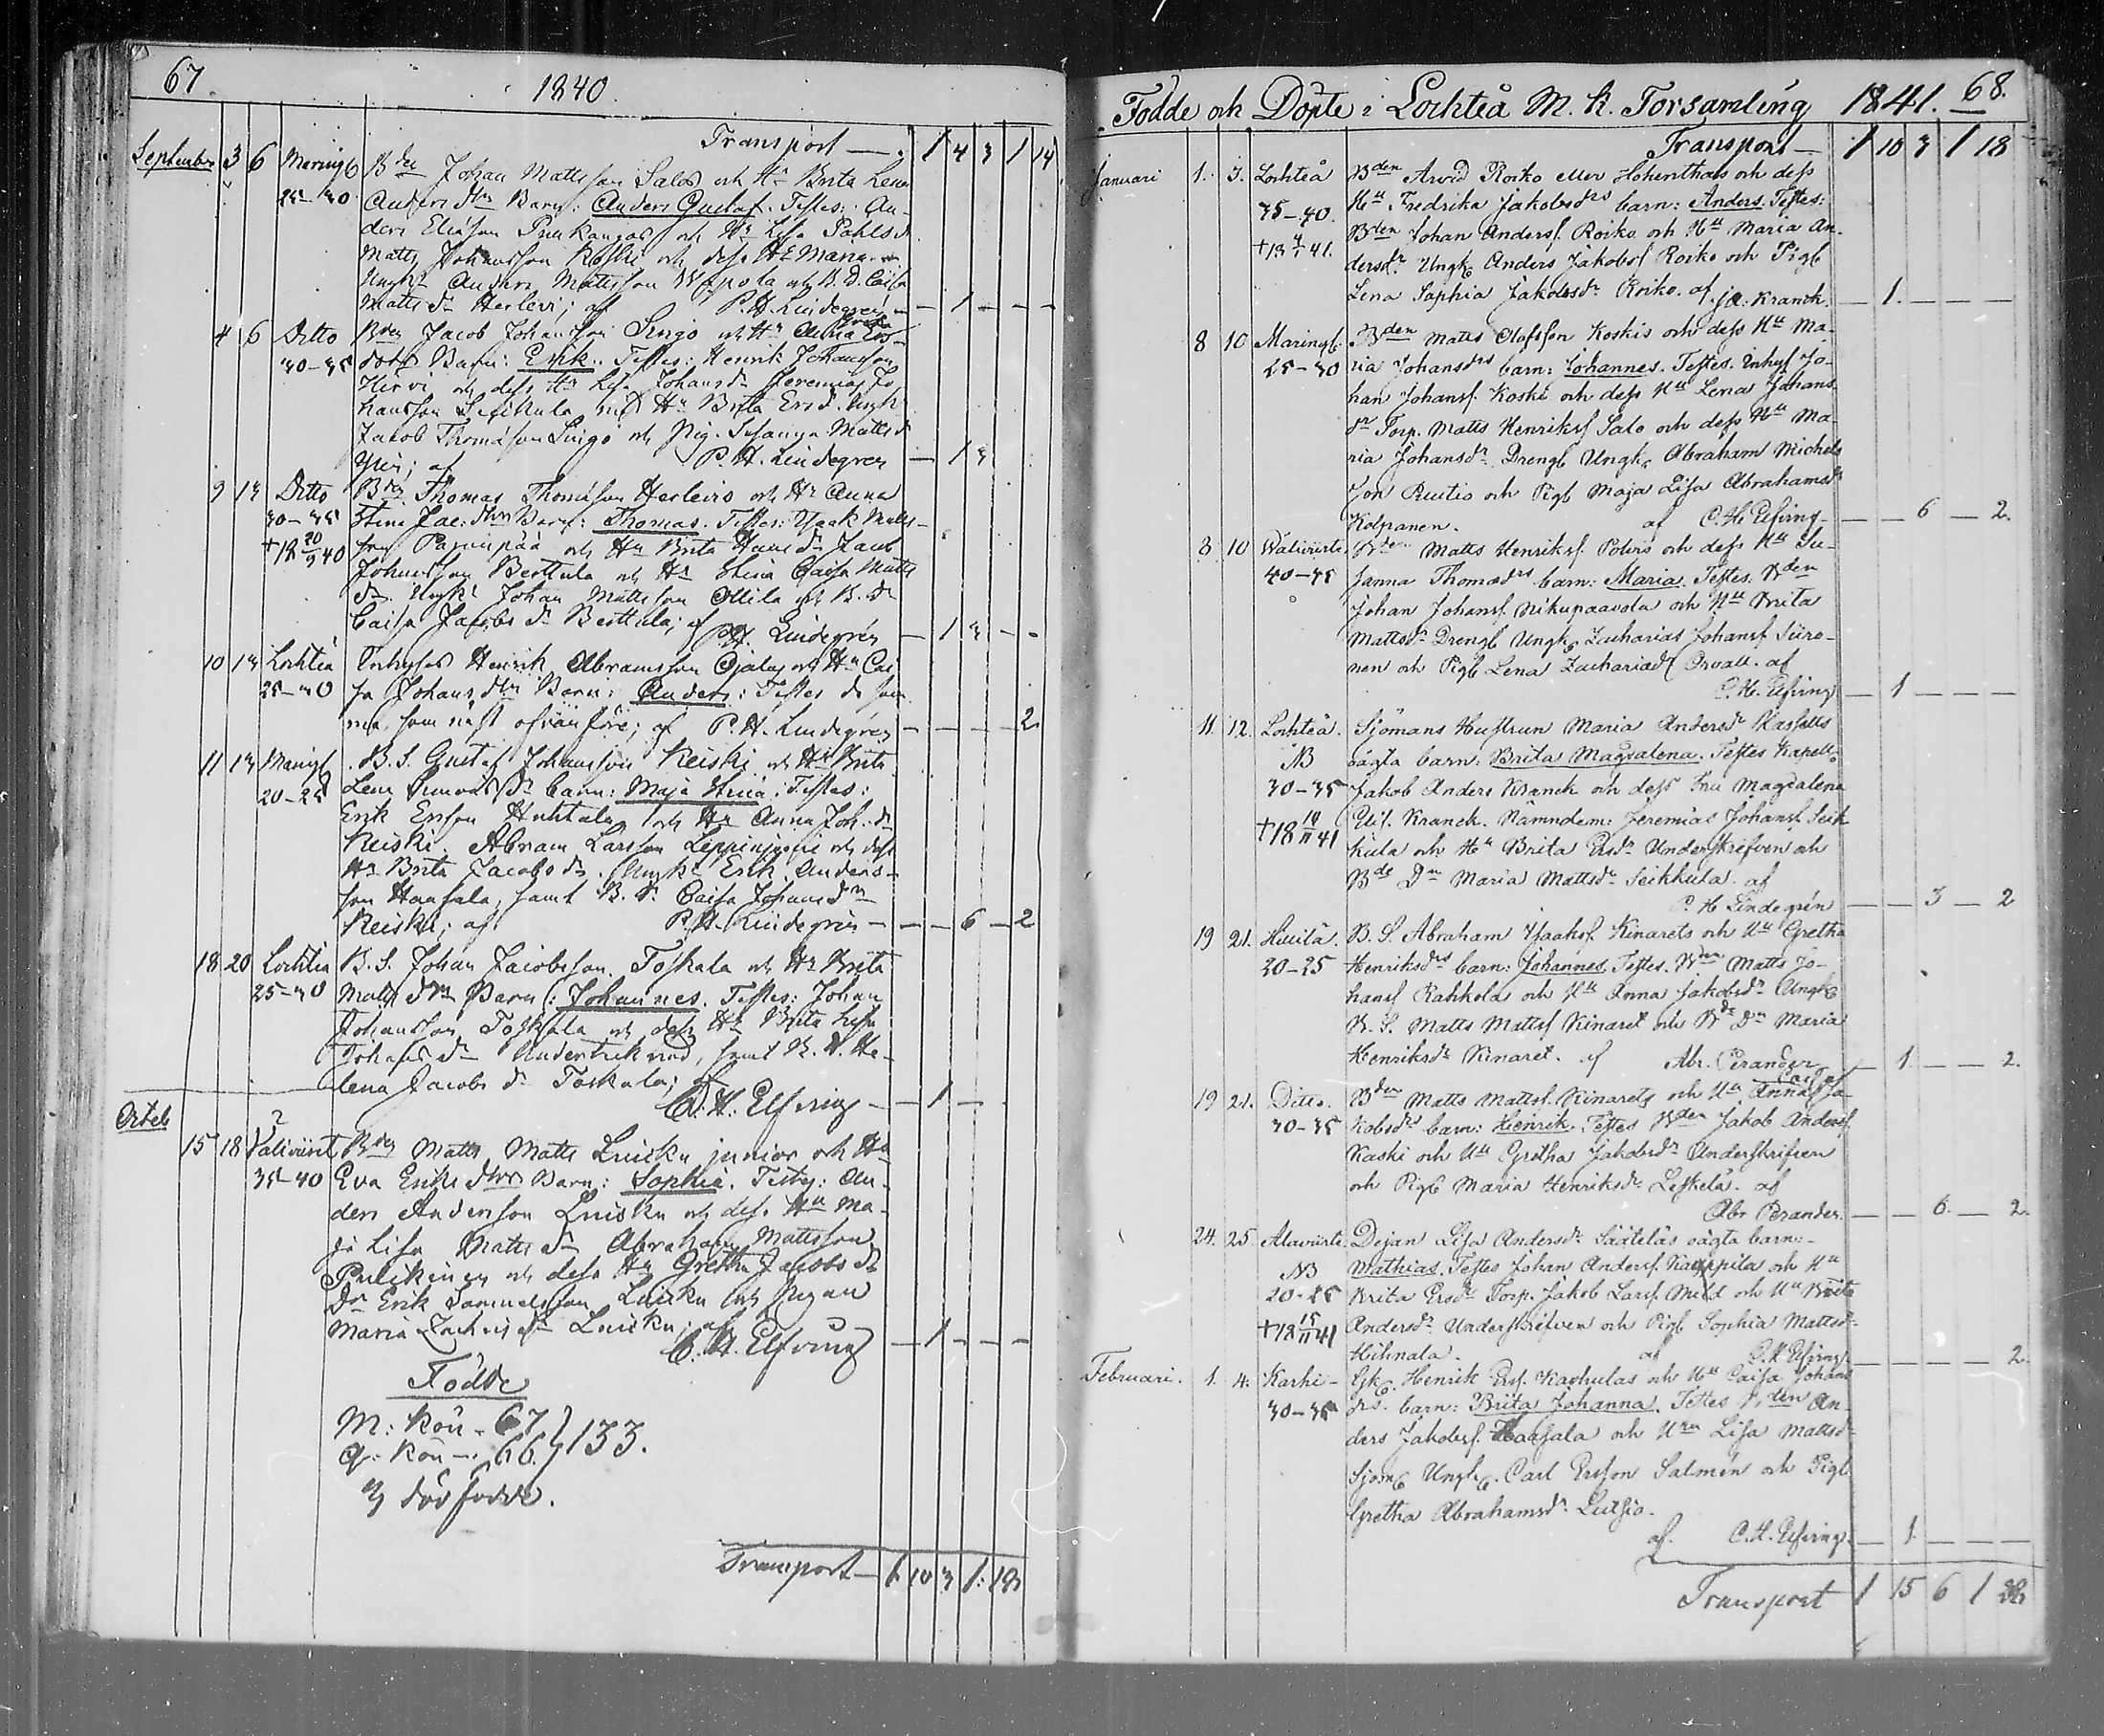 67. 1840.
Transport — 1 4 3 1 14
September 3 6 Maringb Bden Johan Mattsson Salos och Hu Brita Lena
25–30 Anders dtrs Barn: Anders Gustaf. Testes: An-
ders Eliasson och Hu Lisa Pahlsdr
Matts Johansson Koski och dess Hu Maria
Ungk. Anders Mattsson och B. D. Caisa
Matts dr Herlevi; af P. H. Lindegrén — 1 — —
4 6 Ditto Bden Jacob Johansson Lingo och Hu Greta
30–35 dotrs Barn: Erik. Testes: Henrik Johansson
Hirvi och dess Hu Lisa Johansdr Jeremias Jo-
hansson Seikkula med Hu Brita Ersd. Ungk
Jacob Thomasson Lingo och Pig. Susanna Mattsdr
af P. H. Lindegren — 1 3
9 13 Ditto Bden Thomas Thomasson Herlevis och Hu Anna
30–35 Stina Jac. dtrs Barn: Thomas. Testes: Isaak Matts-
+18 20/9 40 son och Hu Brita Hansdr Jacob
Johansson Berttula och Hu Stina Caisa Matts
dr. Ungk: Johan Mattsson Ollila och B. dr
Caisa Jacobs dr Berttula; af P. H. Lindegrén — 1 3 — -
10 13 Lochteå Inhyses Henrik Abramsson och Hu Cai-
25–30 sa Johans dtrs Barn: Anders: Testes de sam-
ma som näst ofvanföre; af P. H. Lindegrén — — — — 2
11 13 Maringb. B. S. Gustaf Johansson Keiski och Hu Brita
20–25 Lena dr barn: Maja Stina: Testes:
Erik Ersson Huhtala och Hu Anna Joh. dr
Keiski. Abram Larsson och dess
Hu Brita Jacobs dr. Ungk: Erik Anders-
son Haasala, samt B. Dr. Caisa Johansdr
Keiski; af P. H. Lindegrén — — — 6 — 2
18 20 Lochteå B. S. Johan Jacobsson Toskala och Hu Brita
25–30 Matts dtrs Barn: Johannes. Testes: Johan
Johansson Toskala och dess Hu Brita Lisa
Johans dr Undertecknad, samt B. D. He-
lena Jacobs dr Toskala; af
C. H. Elfving — — 1 —
Octob 15 18 Väliviirt Bden Matts Matts Luisku junior och Hu
35–40 Eva Eriks dtrs Barn: Sophia. Testes: An-
ders Andersson Luisku och dess Hu Ma-
ja Lisa Matts dr Abraham Mattsson
Pulkinen och dess Hu Gretha Jacobs dr
Dr Erik Samuelsson Luisku och Pigan
Maria dr Luisku; af
C. H. Elfving — 1 — — —
Födde
M: Kön - 67 } 133.
Q: Kön - 66
3 dödfödde.
Transport — 1 10 3 1: 18
Födde och Döpte i Lochteå M. K. Församling 1841. 68.
Transport — 1 10 3 1 18
Januari 1. 3. Lochteå Bden Arvid Roiko eller Hohenthals och dess
35–40. Hu Fredrika Jakobsdrs barn: Anders. Testes:
+18 4/1 41. Bden Johan Anders. Roiko och Hu Maria An-
dersdr. Ungk Anders Jakobss Roiko och Pigb
Lena Sophia Jakobsdr Roiko. af J. A. Kranck. — 1. — — —
8 10 Maringb. Bden Matts Olofsson Koskis och dess Hu Ma-
25–30 ria Johansdrs barn: Johannes. Testes. Inhys Jo-
han Johanss. Koski och dess Hu Lena Johans
dr Torp. Matts Henrikss Salo och dess Hu Ma-
ria Johansdr. Drengb Ungk Abraham Michels
son Ruutio och Pigb Maja Lisa Abrahamsdr
Kolpanen. af C. H. Elfving — — 6 — 2.
8 10 Wäliviirte Bden Matts Henrikss. Polvis och dess Hu Su-
40–45 sanna Thomasdrs barn: Maria. Testes. Bden
Johan Johanss. Nikupaavola och Hu Brita
Mattsdr Drengb Ungk Zacharias Johanss Siiro-
nen och Pigb Lena Zachariedr Orvall. af
C. H. Elfving — 1 — — —
11. 12. Lochteå. Sjömans Hustrun Maria Andersdr Hassells
NB oägta barn: Brita Magdalena. Testes Kapell-
30–35 Jakob Anders Kranck och dess Fru Magdalena
+18 14/11 41 Elis. Kranck. Nämndem: Jeremias Johanss. Seik-
kula och Hu Brita Ersdr Underskrefven och
Bde Dr Maria Mattsdr Seikkula. af
P. H. Lindegrén — — 3 — 2
19 21. B. S. Abraham Isaakss. Kinarets och Hu Gretha
20–25 Henriksdrs barn: Johannes. Testes. Bden Matts Jo-
hanss Rahkola och Hu Anna Jakobsdr Ungk
B. S. Matts Mattss Kinaret och Bde Dr Maria
Henriksdr Kinaret. af Abr. Perander — 1. — — 2.
19 21. Ditto. Bden Matts Mattss. Kinarets och Hu Anna Caisa Ja-
30–35 kobsdrs barn: Henrik. Testes Bden Jakob Anderss
Kaski och Hu Gretha Jakobsdr Underskrifven
och Pigb Maria Henriksdr Leskelä. af
Abr Perander. — — 6. — 2.
24. 25. Alaviirte. Dejan Lisa Andersdr Sääteläs oägta barn:
NB Mathias. Testes Johan Anderss. Kauppila och Hu
20–25 Brita Ersdr Torp. Jakob Larss. Mild och Hu Brita
+18 15/11 41 Andersdr. Underskrifven och Pigb Sophia Mattsdr
Hihnala. af C. H. Elfving — — — — 2.
Februari. 1. 4. Karhi- Gk. Henrik Erss. Karhulas och Hu Caisa Johans
30–35 drs. barn: Brita Johanna. Testes Bden An-
ders Jakobss. Haasala och Hu Lisa Mattsdr
Sjöm Ungk. Carl Ersson Salmén och Pigb
Gretha Abrahamsdr Lutsio.
af. C. H. Elfving. — 1 — — —
Transport 1 15 6 1 28